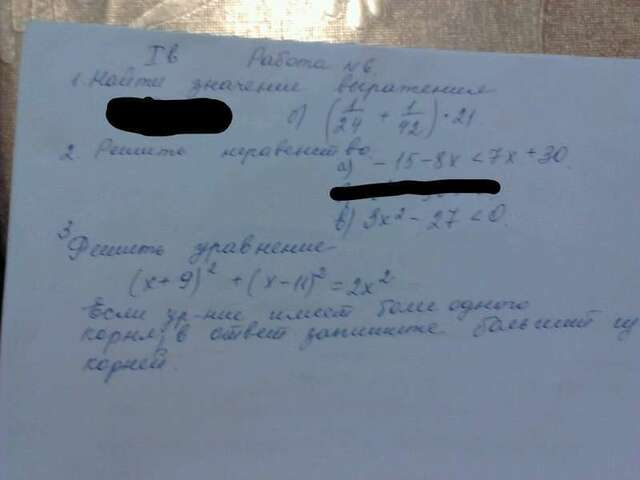 I в Работа №6.
1. Найти значение выражения
б) (1/24 + 1/42) · 21
2. Решить неравенство.
а) -15-8x < 7x + 30.
в) 3x² - 27 < 0.
3. Решить уравнение
(x+9)² + (x-11)² = 2x²
Если ур-ние имеет более одного
корня, в ответ запишите больший из
корней.